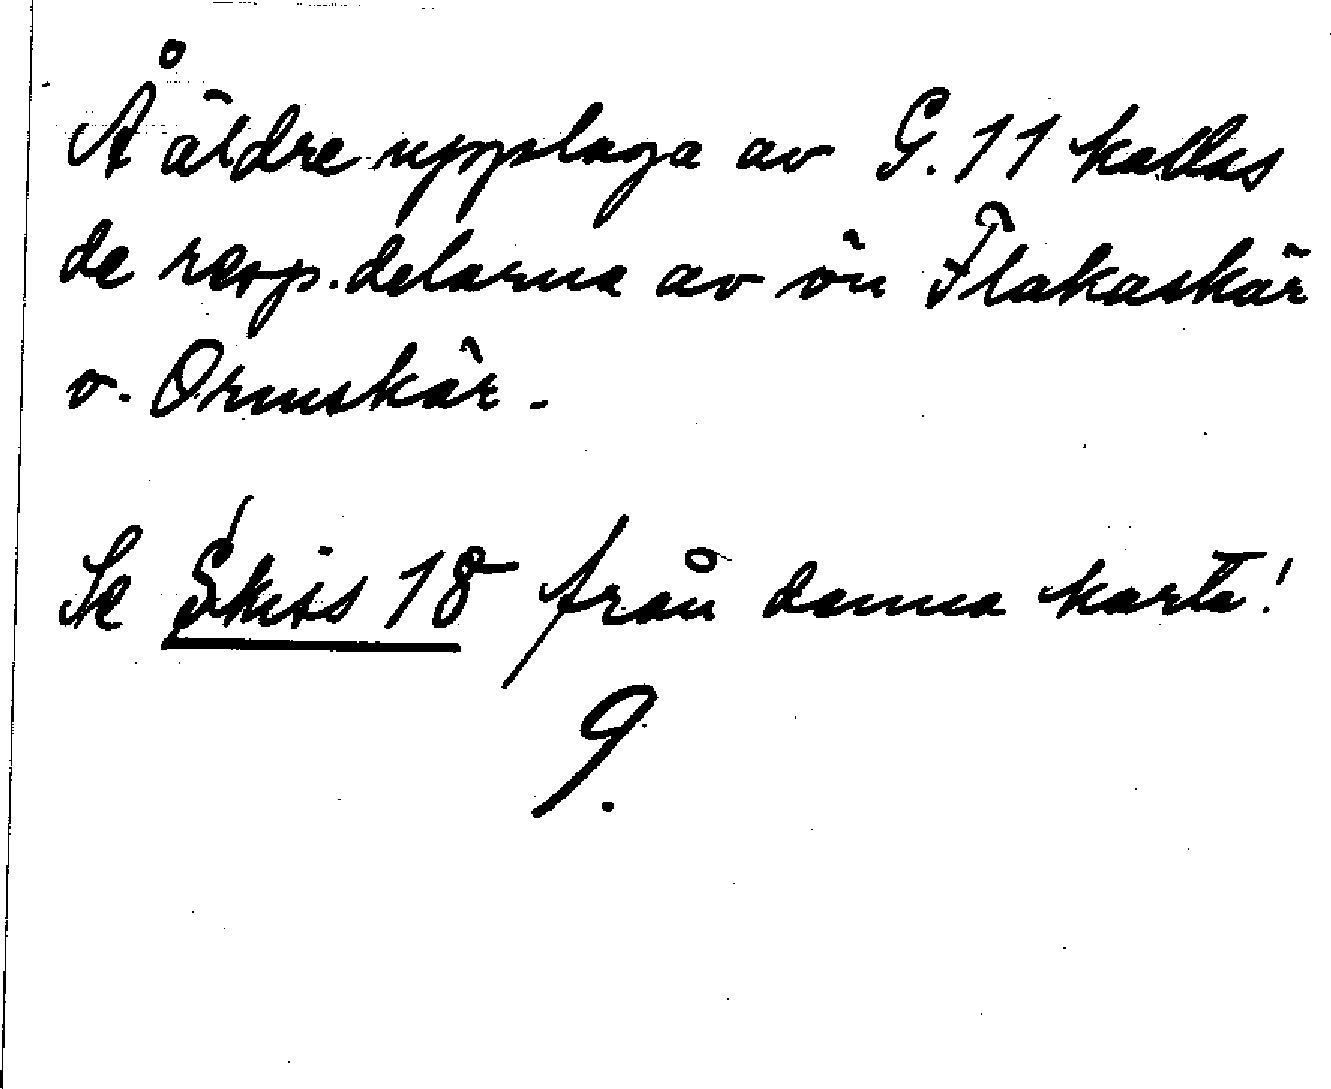 Å äldre upplaga av G.11 kallas
de resp. delarna av ön Flakaskär
o. Ormskär.
Se Skiss 18 från denna karta!
9.